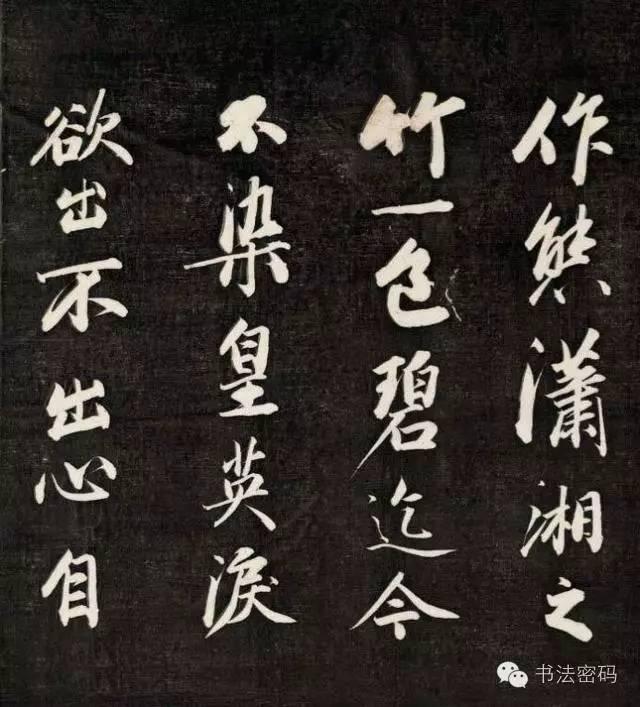 作態瀟湘之
竹一色碧迄今
不染皇英淚
欲出不出心自
书法密码